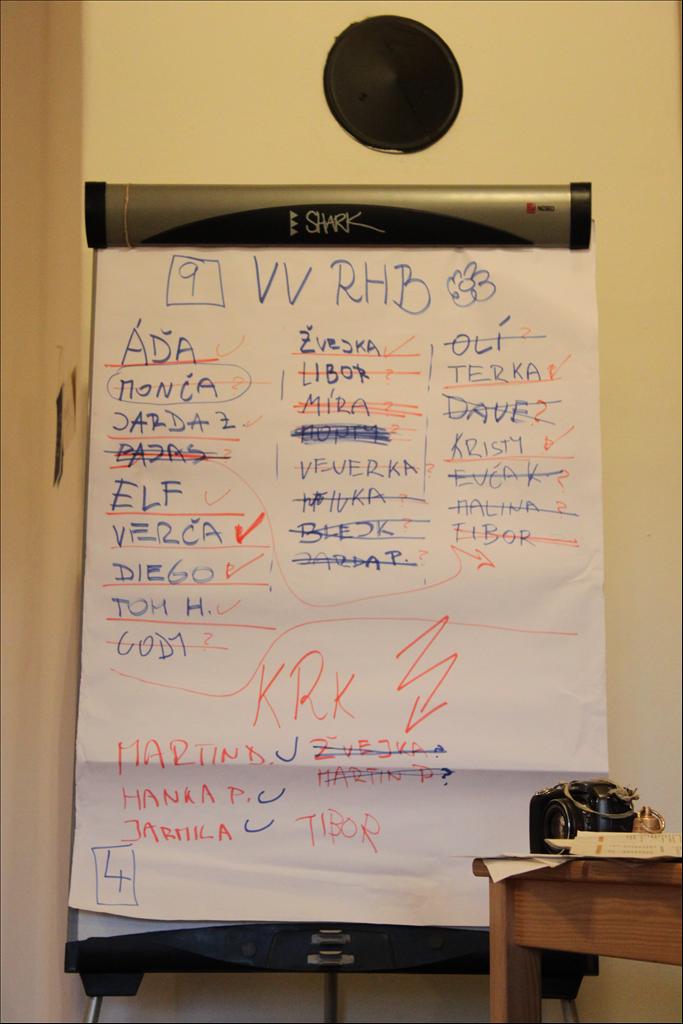 SHARK
NOBO
9 VV RHB
ÁĎA
MONČA ?
JARDA Z
BAJAS ?
ELF
VERČA
DIEGO
TOM H.
GODY ?
ŽVEJKA
LIBOR ?
MÍRA ?
VEVERKA ?
BLEJK ?
JARDA P. ?
OLÍ ?
TERKA
DAVE ?
KRISTY
EVČA K. ?
MALINA ?
TIBOR
KRK
MARTIN D.
HANKA P.
JARMILA
ŽVEJKA ?
MARTIN P ?
TIBOR
4